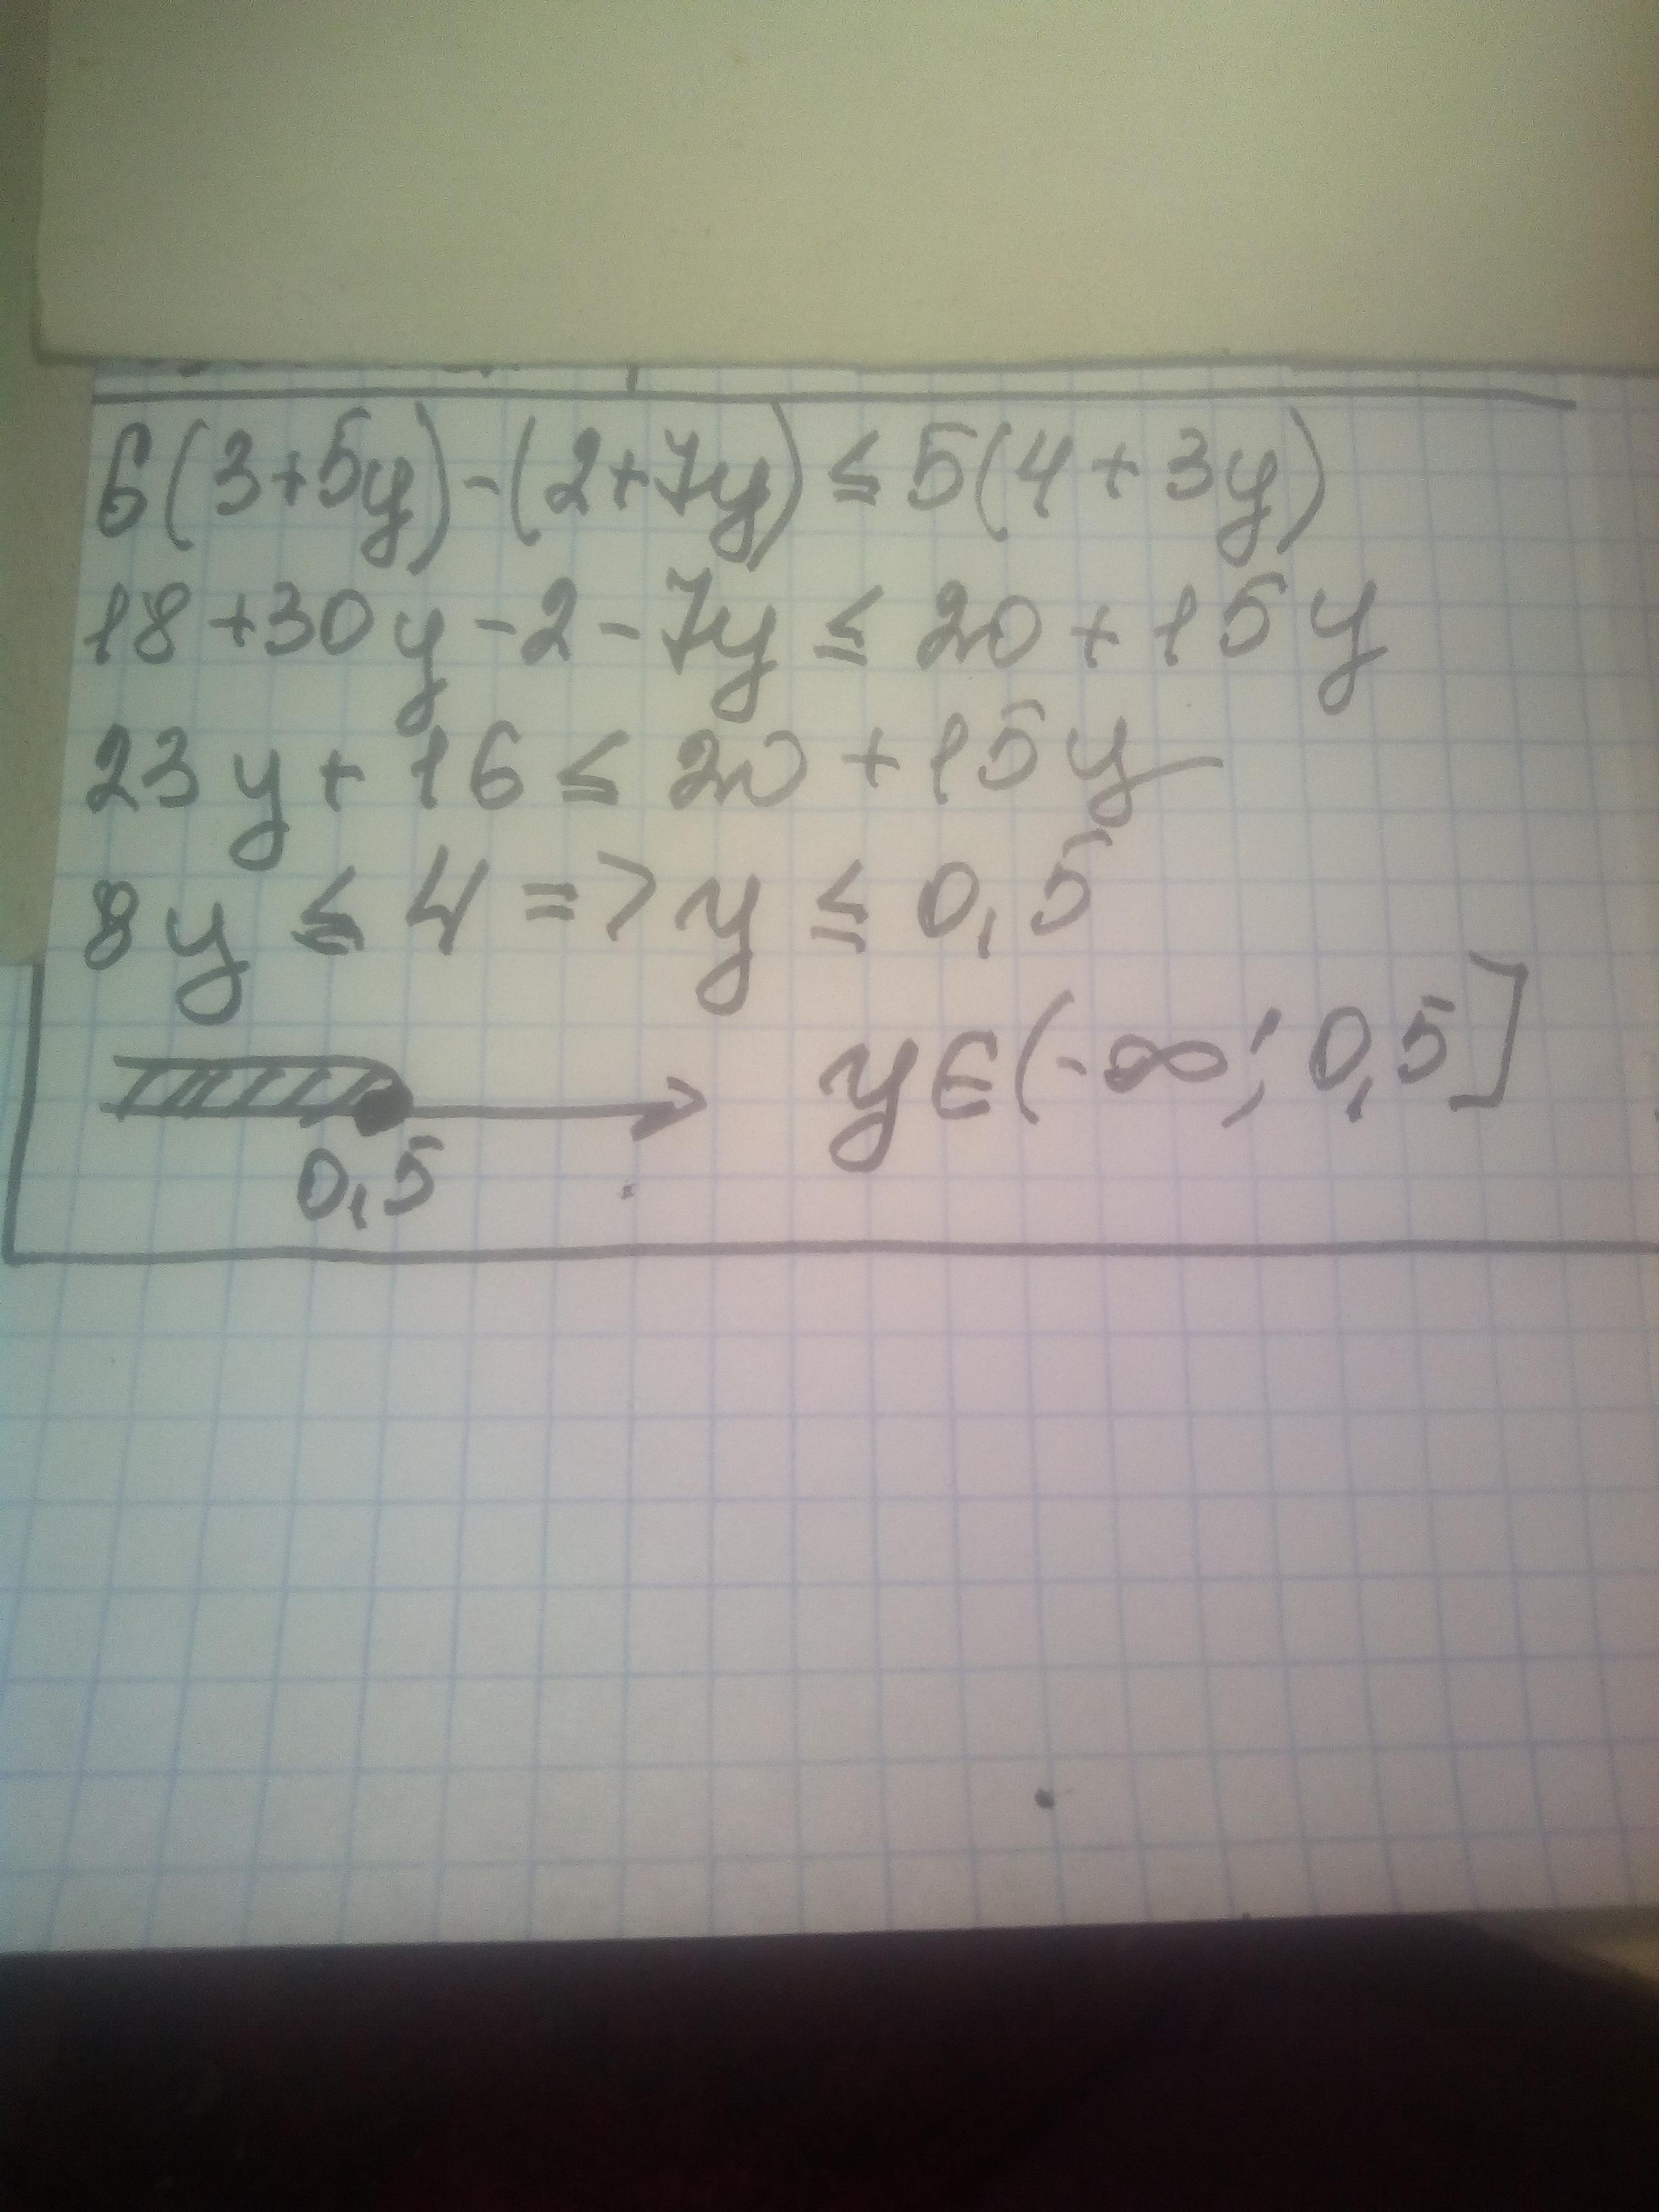 6(3+5y)-(2+7y)≤5(4+3y)
18+30y-2-7y≤20+15y
23y+16≤20+15y
8y≤4=>y≤0,5
y∈(-∞; 0,5]
0,5